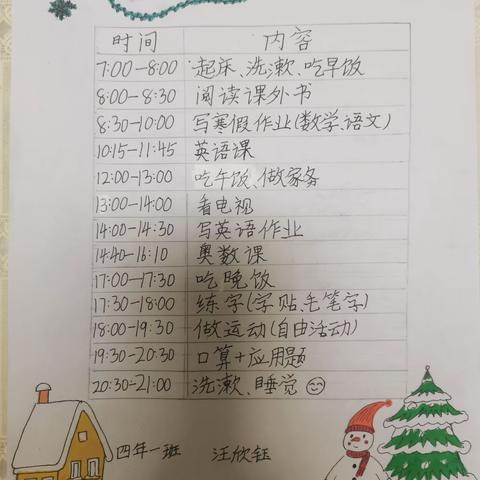 时间 内容
7:00—8:00 起床、洗漱、吃早饭
8:00—8:30 阅读课外书
8:30—10:00 写寒假作业(数学、语文)
10:15—11:45 英语课
12:00—13:00 吃午饭、做家务
13:00—14:00 看电视
14:00—14:30 写英语作业
14:40—16:10 奥数课
17:00—17:30 吃晚饭
17:30—18:00 练字(字贴、毛笔字)
18:00—19:30 做运动(自由活动)
19:30—20:30 口算+应用题
20:30—21:00 洗漱、睡觉
四年一班 汪欣钰